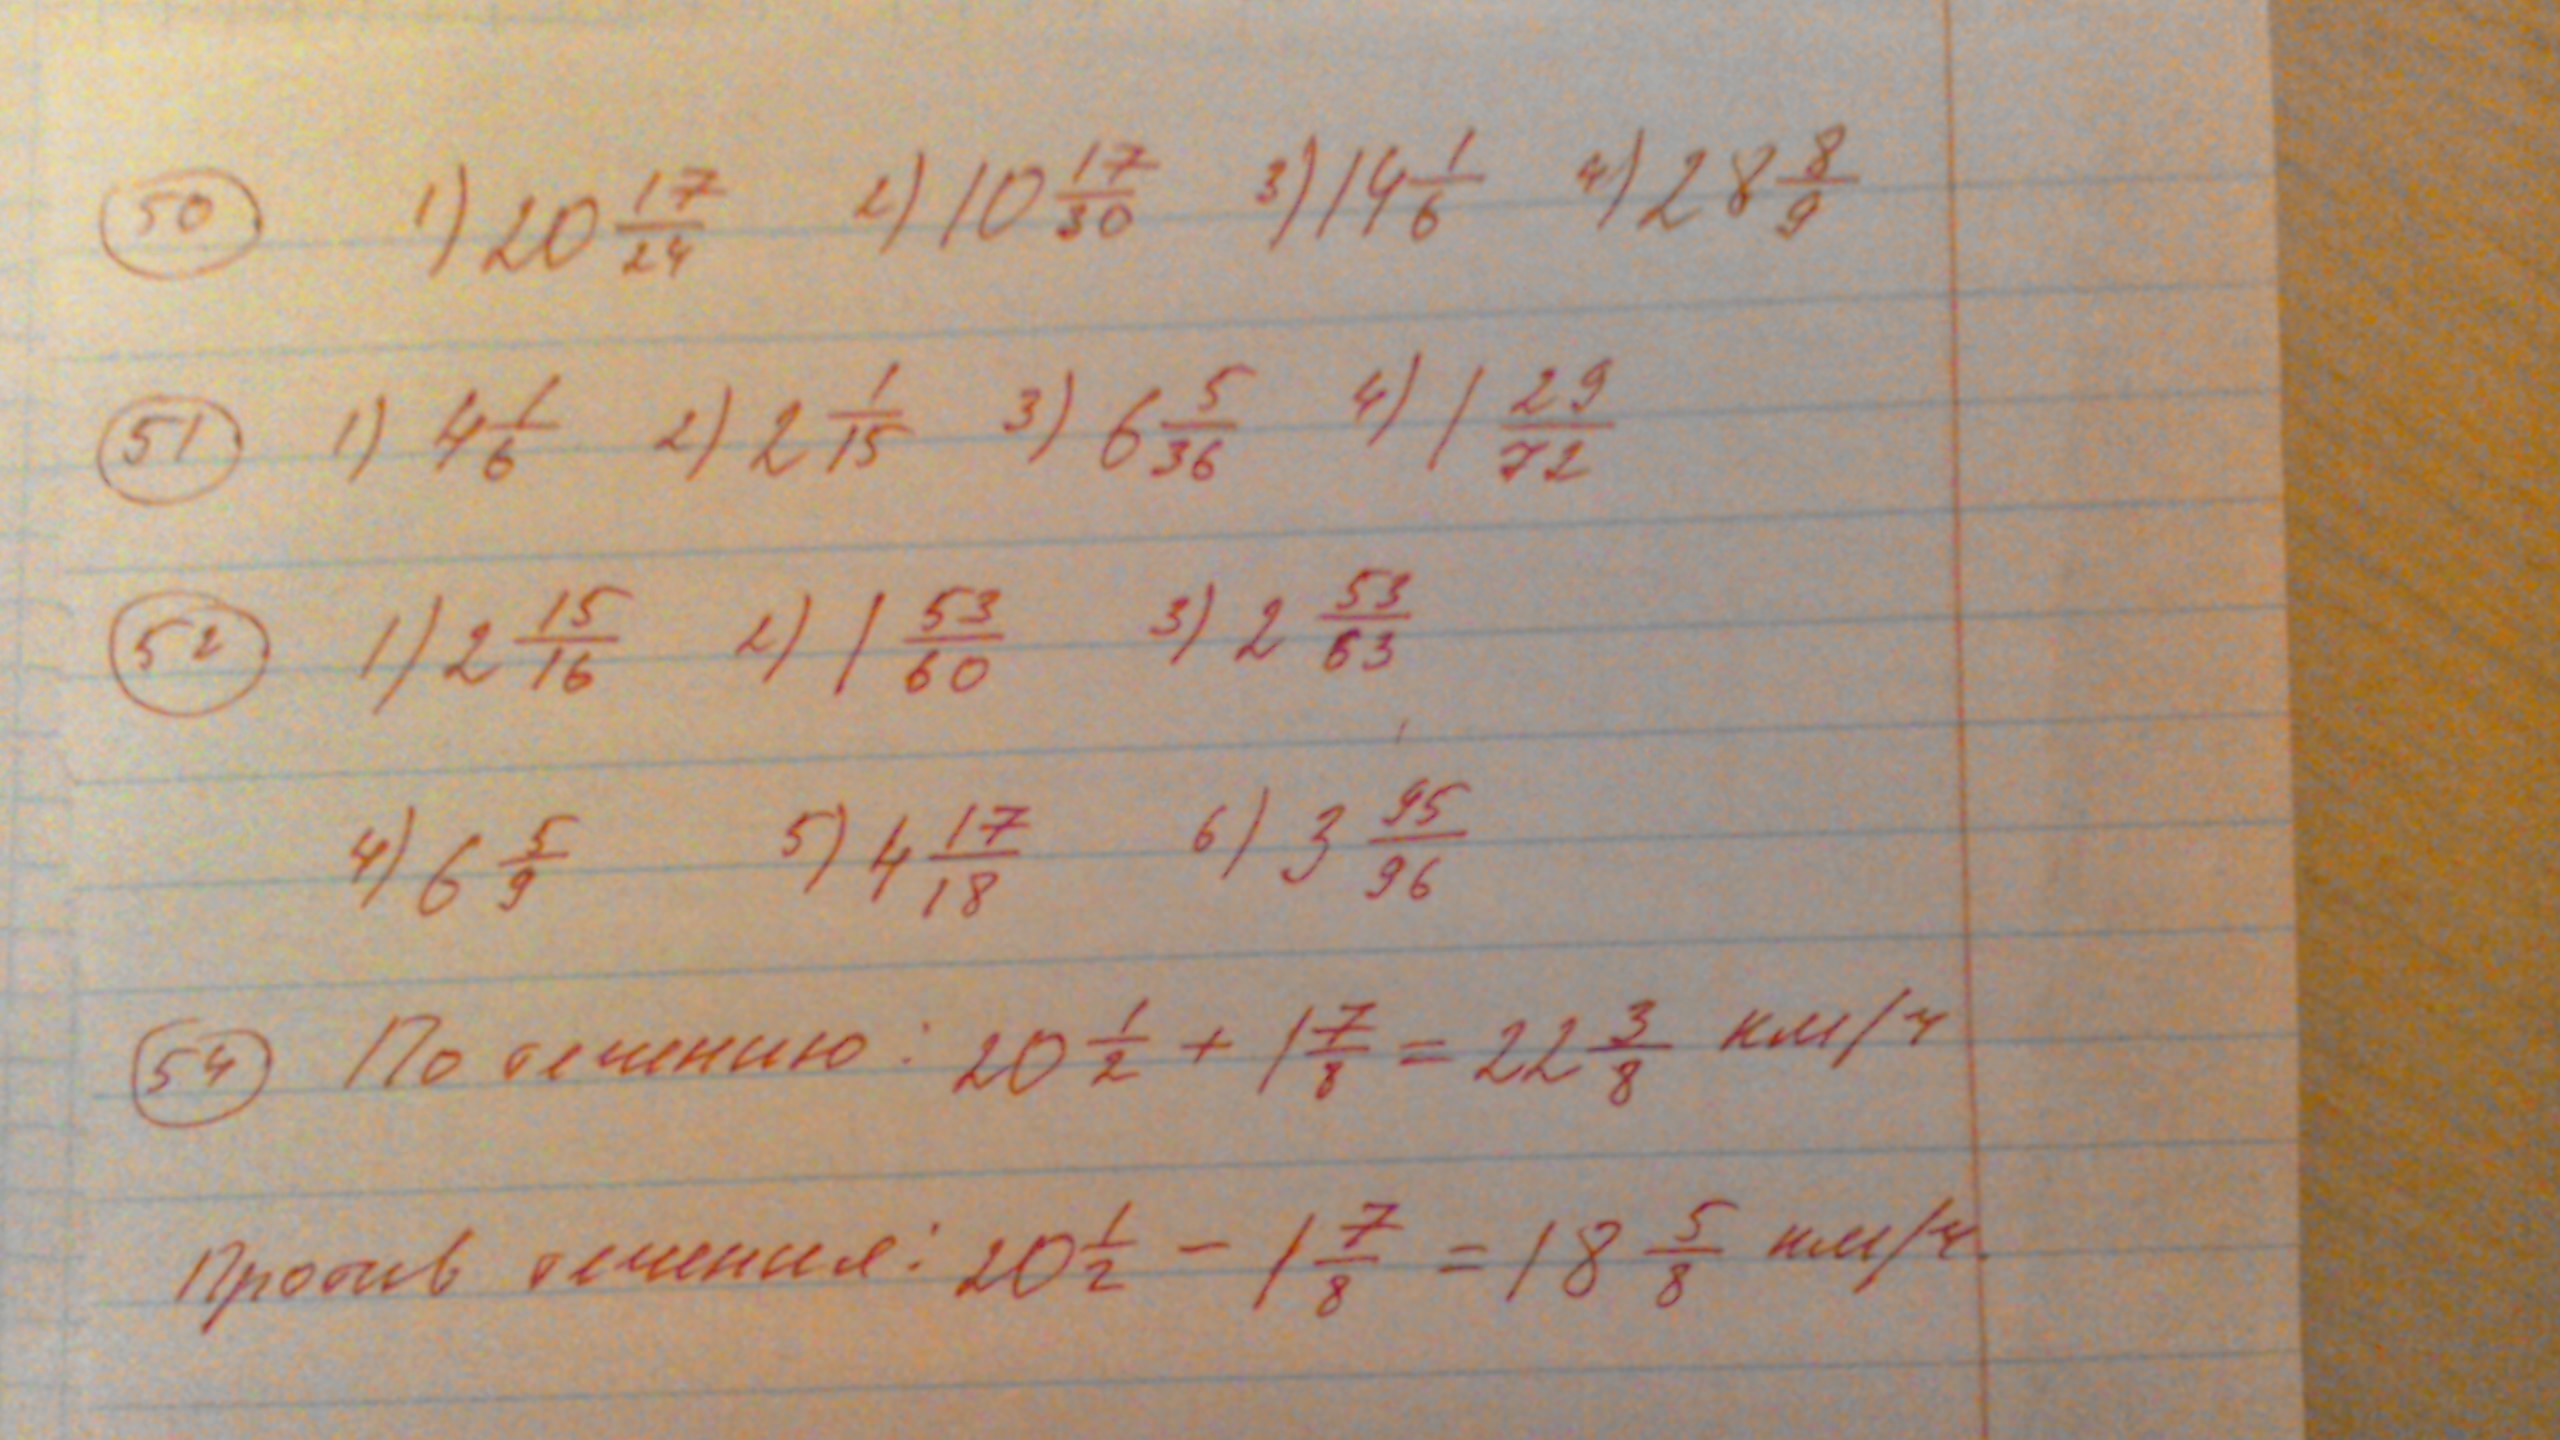 50 1) 20 17/24 2) 10 17/30 3) 14 1/6 4) 28 8/9
51 1) 4 1/6 2) 2 1/15 3) 6 5/36 4) 1 29/72
52 1) 2 15/16 2) 1 53/60 3) 2 53/63
4) 6 5/9 5) 4 17/18 6) 3 95/96
54 По течению: 20 1/2 + 1 7/8 = 22 3/8 км/ч
Против течения: 20 1/2 - 1 7/8 = 18 5/8 км/ч.